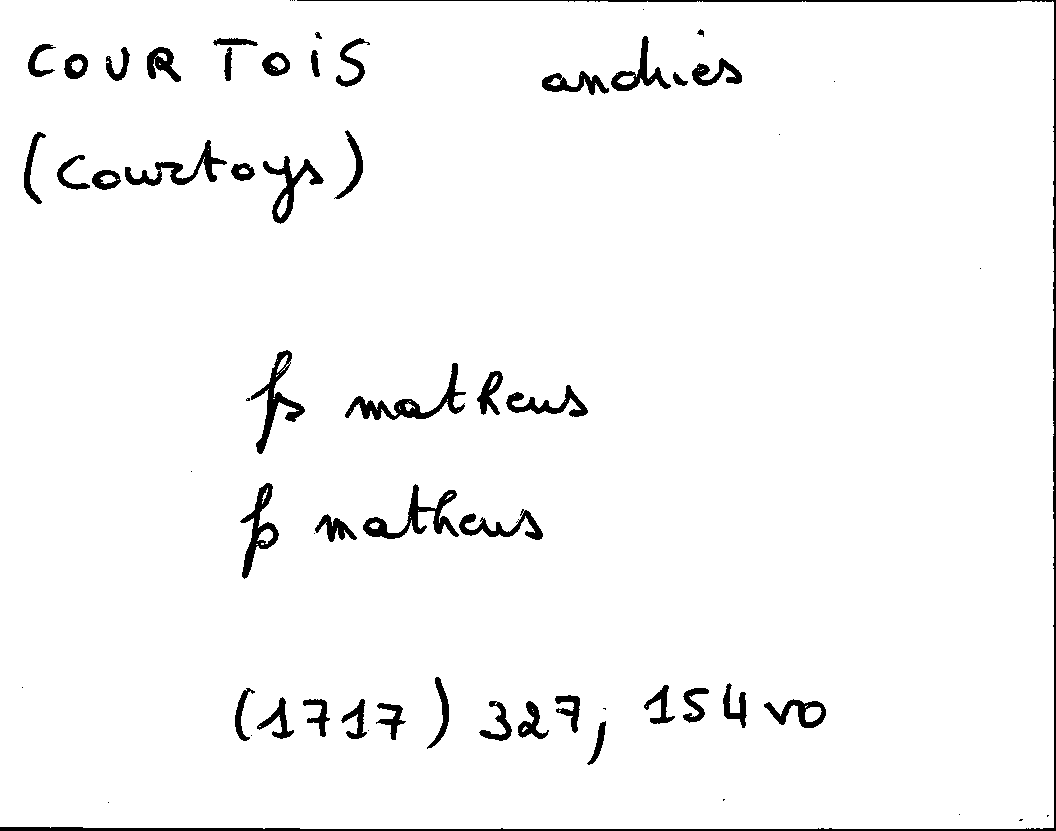 COURTOIS andries
(Courtoys)
fs matheus
p matheus
(1717) 327, 154 vo